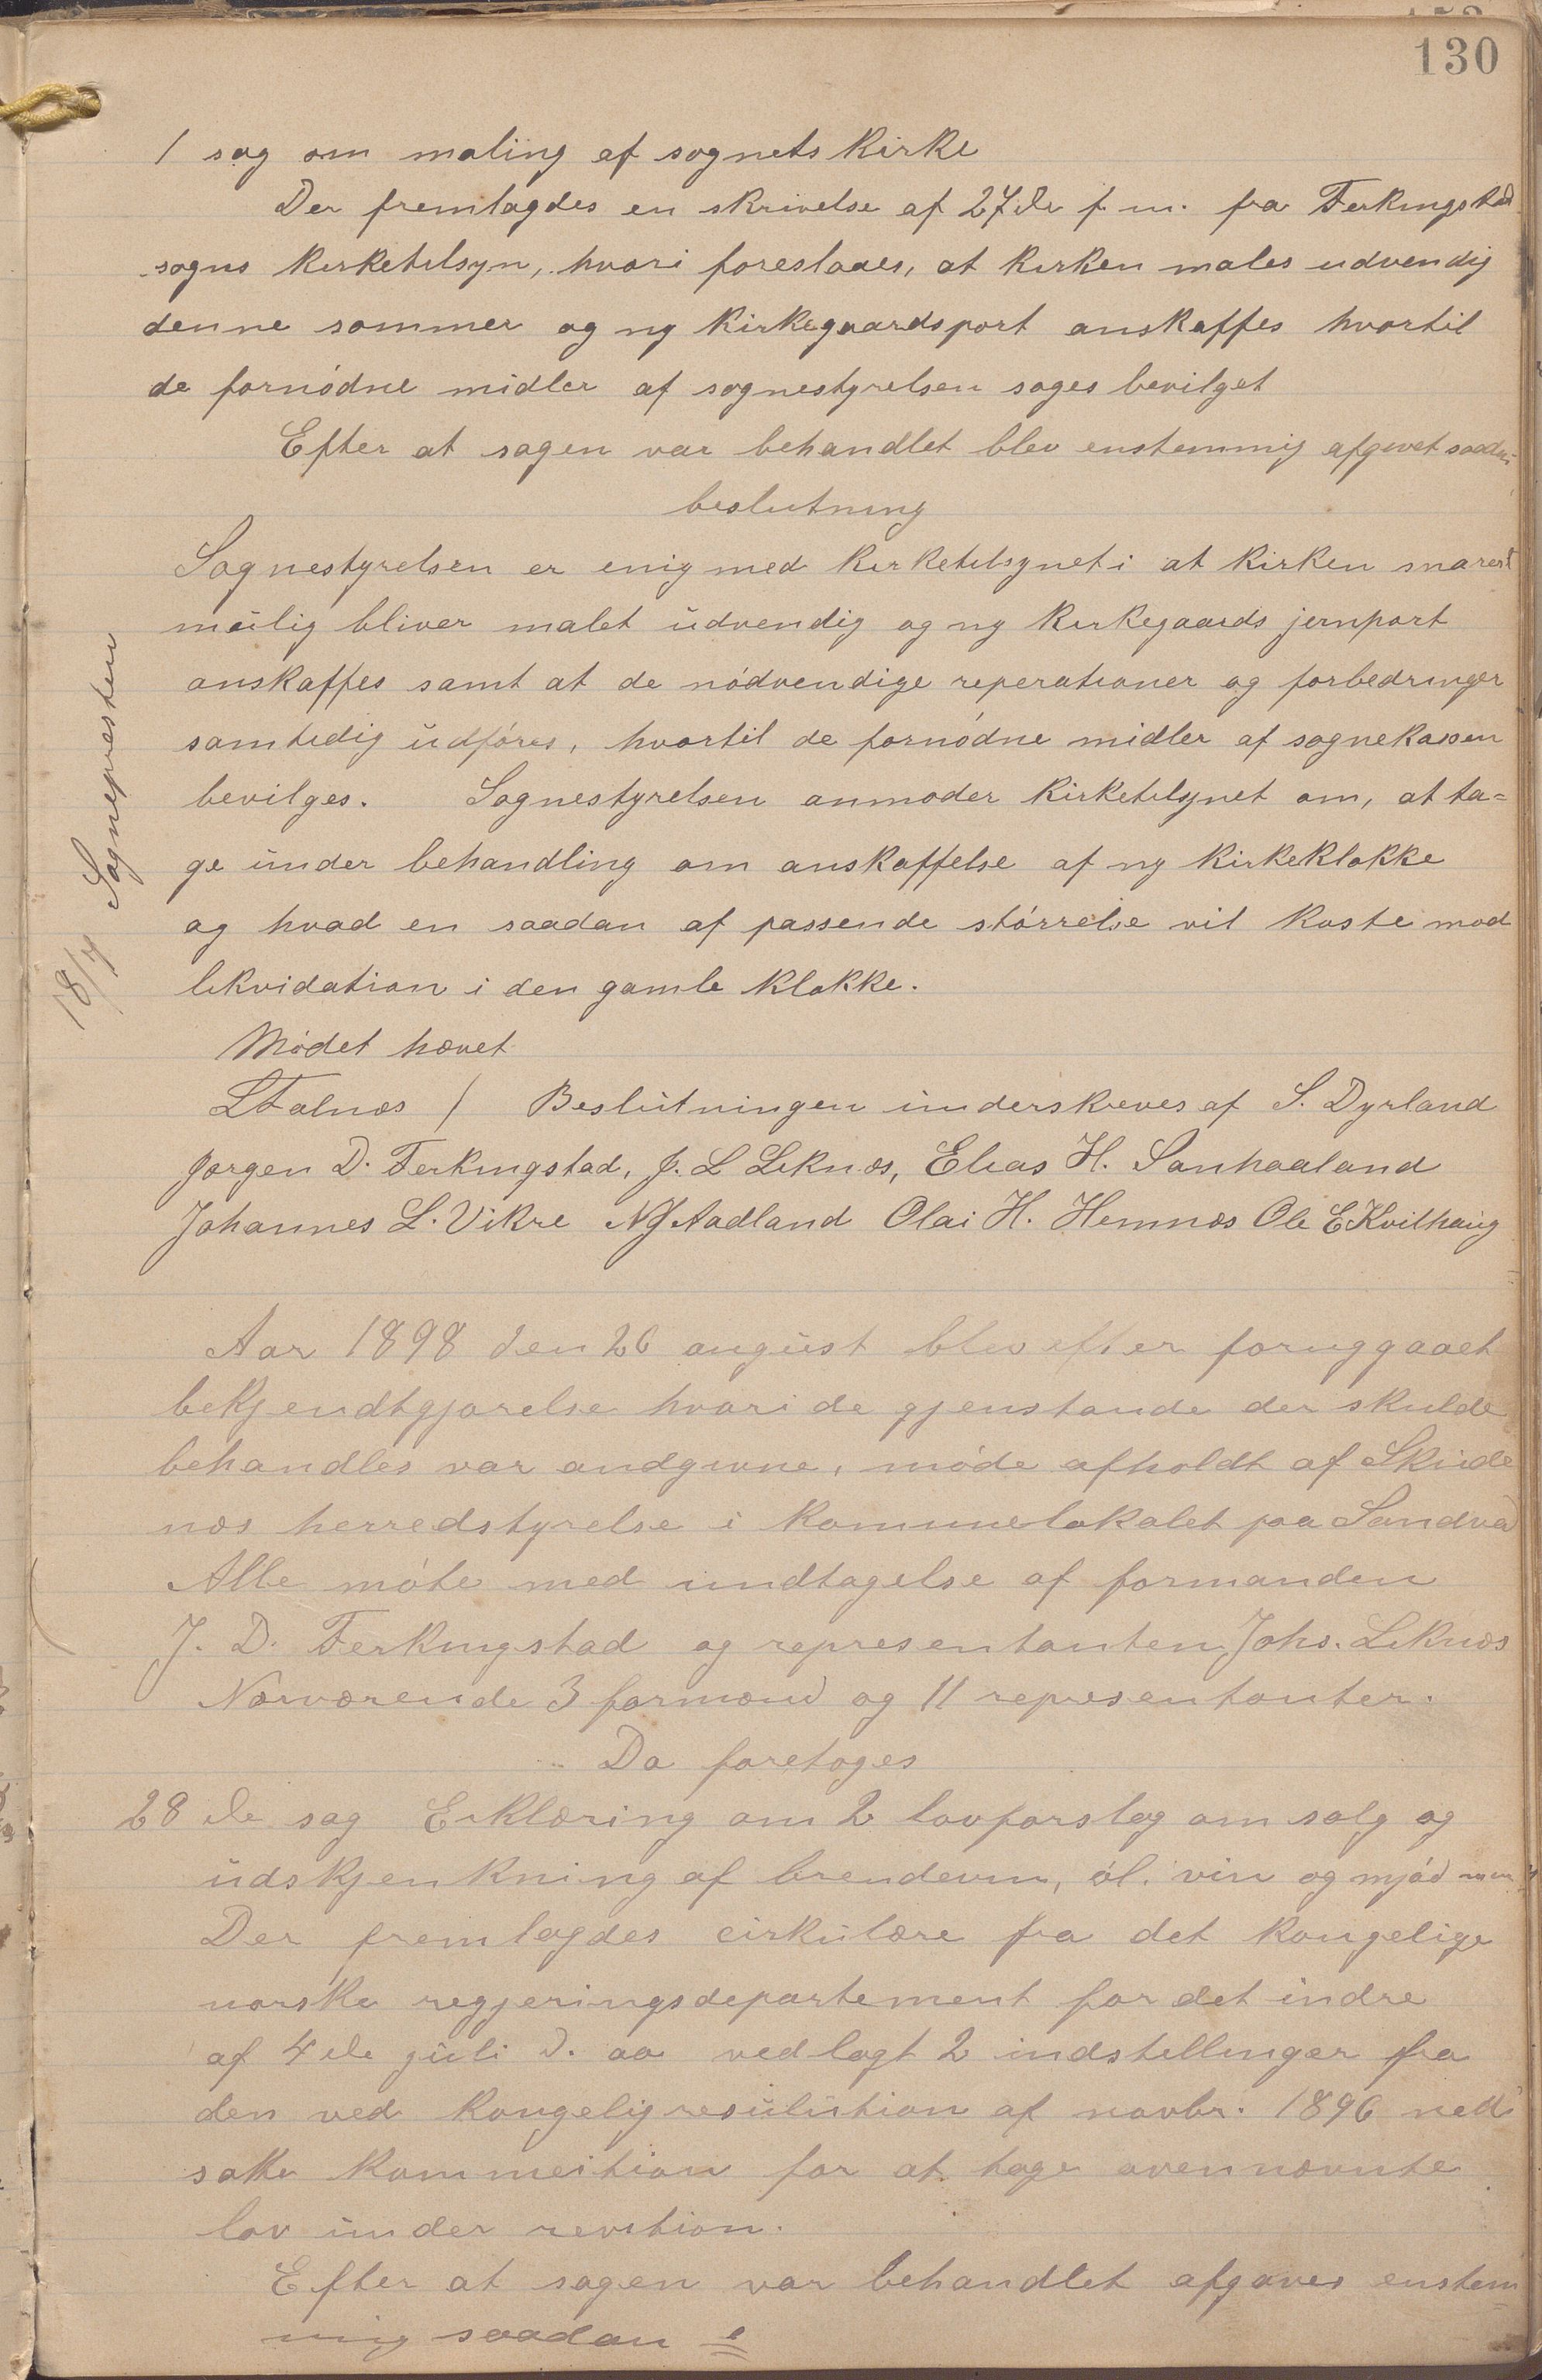 130
1 sag om maling af sognets Kirke
Der fremlagdes en skrivelse af 27de f. m. fra Ferkingstad
sogns Kirketilsyn, hvori foreslaaes, at Kirken males udvendig
denne sommer og ny Kirkegaardsport anskaffes hvortil
de fornódne midler af sognestyrelsen soges bevilget
Efter at sagen var behandlet blev enstemmig afgivet saadan
beslutning
Sognestyrelsen er enig med Kirketilsynet i at Kirken snarest
mulig bliver malet udvendig og ny Kirkegaards jernport
anskaffes samt at de nódvendige reperationer og forbedringer
samtidig udfóres, hvortil de fornódne midler af sognekassen
bevilges. Sognestyrelsen anmoder Kirketilsynet om, at ta=
ge under behandling om anskaffelse af ny Kirkeklokke
og hvad en saadan af passende stórrelse vil koste mod
likvidation i den gamle klokke.
Módet hævet
L Falnæs / Beslutningen underskreves af S. Dyrland
Jorgen D. Ferkingstad, J. L Liknæs, Elias H. Sanhaaland
Johannes L. Vikre NJ Aadland Olai H. Hemnæs Ole E Kvilhaug
18/7 Sognepresten
Aar 1898 den 26 august blev efter foruggaaet
bekjendtgjorelse hvori de gjenstande der skulde
behandles var andgivne, móde afholdt af Skude
næs herredstyrelse i Kommunelokalet paa Sandve
Alle móte med undtagelse af formanden
J. D. Ferkingstad og representanten Johs. Liknæs
Nærværende 3 formænd og 11 representanter.
Da foretoges
28 de sag Erklæring om 2 lovforslag om salg og
udskjenkning af brendevin, ól. vin og mjód m m
Der fremlagdes cirkulære fra det kongelige
norske regjeringsdepartement for det indre
af 4 de juli d. aa vedlagt 2 indstillinger fra
den ved Kongelig resulution af novbr. 1896 ned
satte Kommeition for at tage ovennævnte
lov under revition.
Efter at sagen var behandlet afgaves enstem
mig saadan